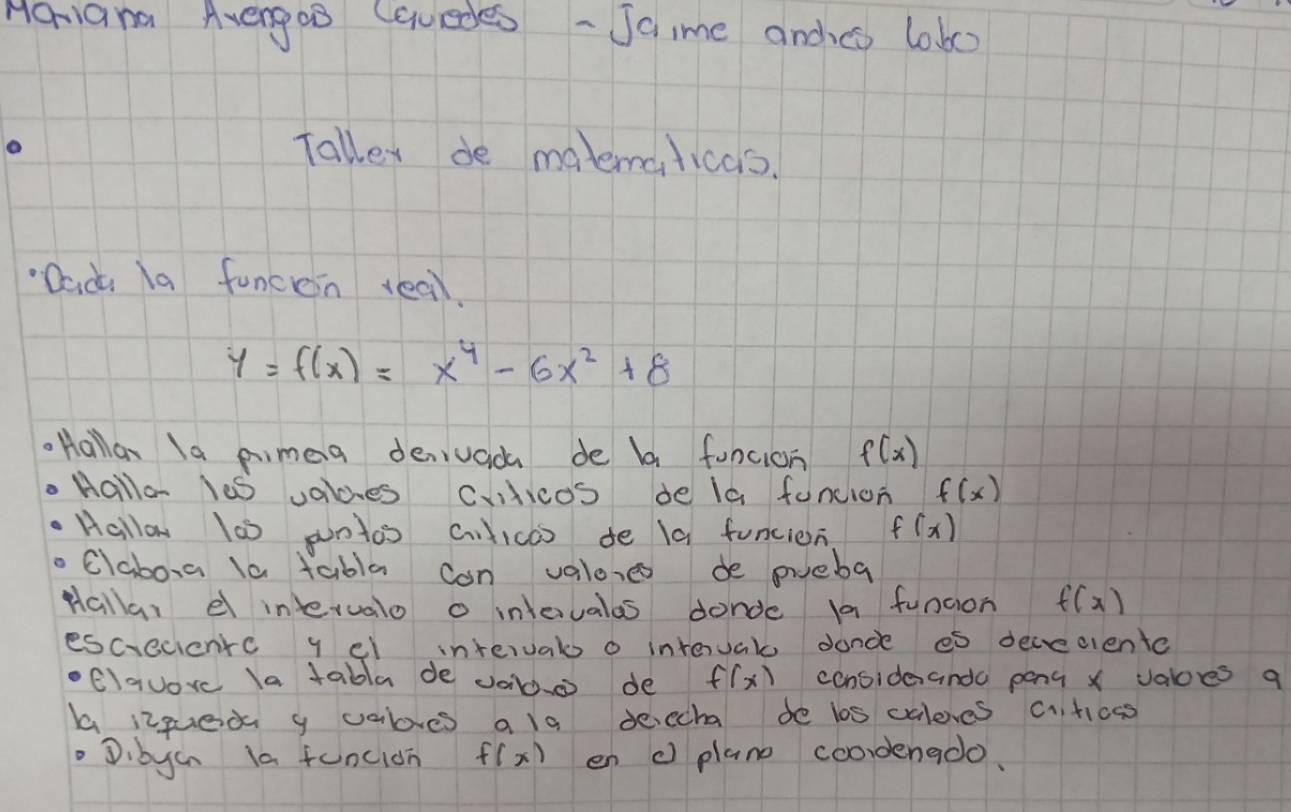 Mariana Avengas - Jaime andres lobo
• Taller de matematicas.
• Dada la función real.
y = f(x) = x⁴ - 6x² + 8
• Hallar la primera derivada de la función f(x)
• Hallar los valores criticos de la función f(x)
• Hallar los puntos criticos de la función f(x)
• Elabora la tabla con valores de prueba
Hallar el intervalo o intervalos donde la funcion f(x)
escreciente y el intervalo o intervalo donde es decreciente
• Elavore la tabla de valores de f(x) considerando para x valores a
la izquierda y valores a la derecha de los valores criticos
• Dibuja la función f(x) en el plano coordenado.